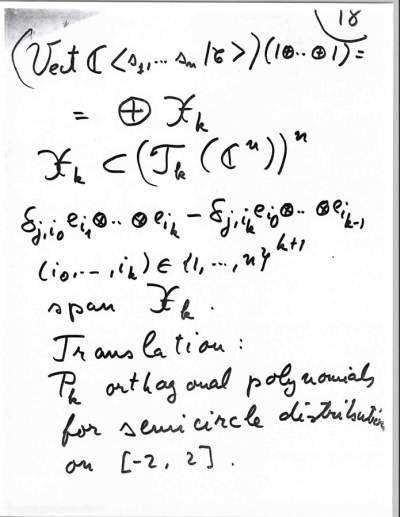 18
(Vect ℂ<s₁,... sₙ | τ>)(1⊗..⊗1) =
= ⊕ 𝒳ₖ
𝒳ₖ ⊂ (𝒯ₖ(ℂⁿ))ⁿ
δ_{j,i₀} e_{i₁}⊗..⊗e_{iₖ} − δ_{j,iₖ} e_{i₀}⊗..⊗e_{iₖ₋₁}
(i₀,..,iₖ) ∈ {1,...,n}^{k+1}
span 𝒳ₖ.
Translation:
Pₖ orthogonal polynomials
for semicircle distribution
on [-2, 2].